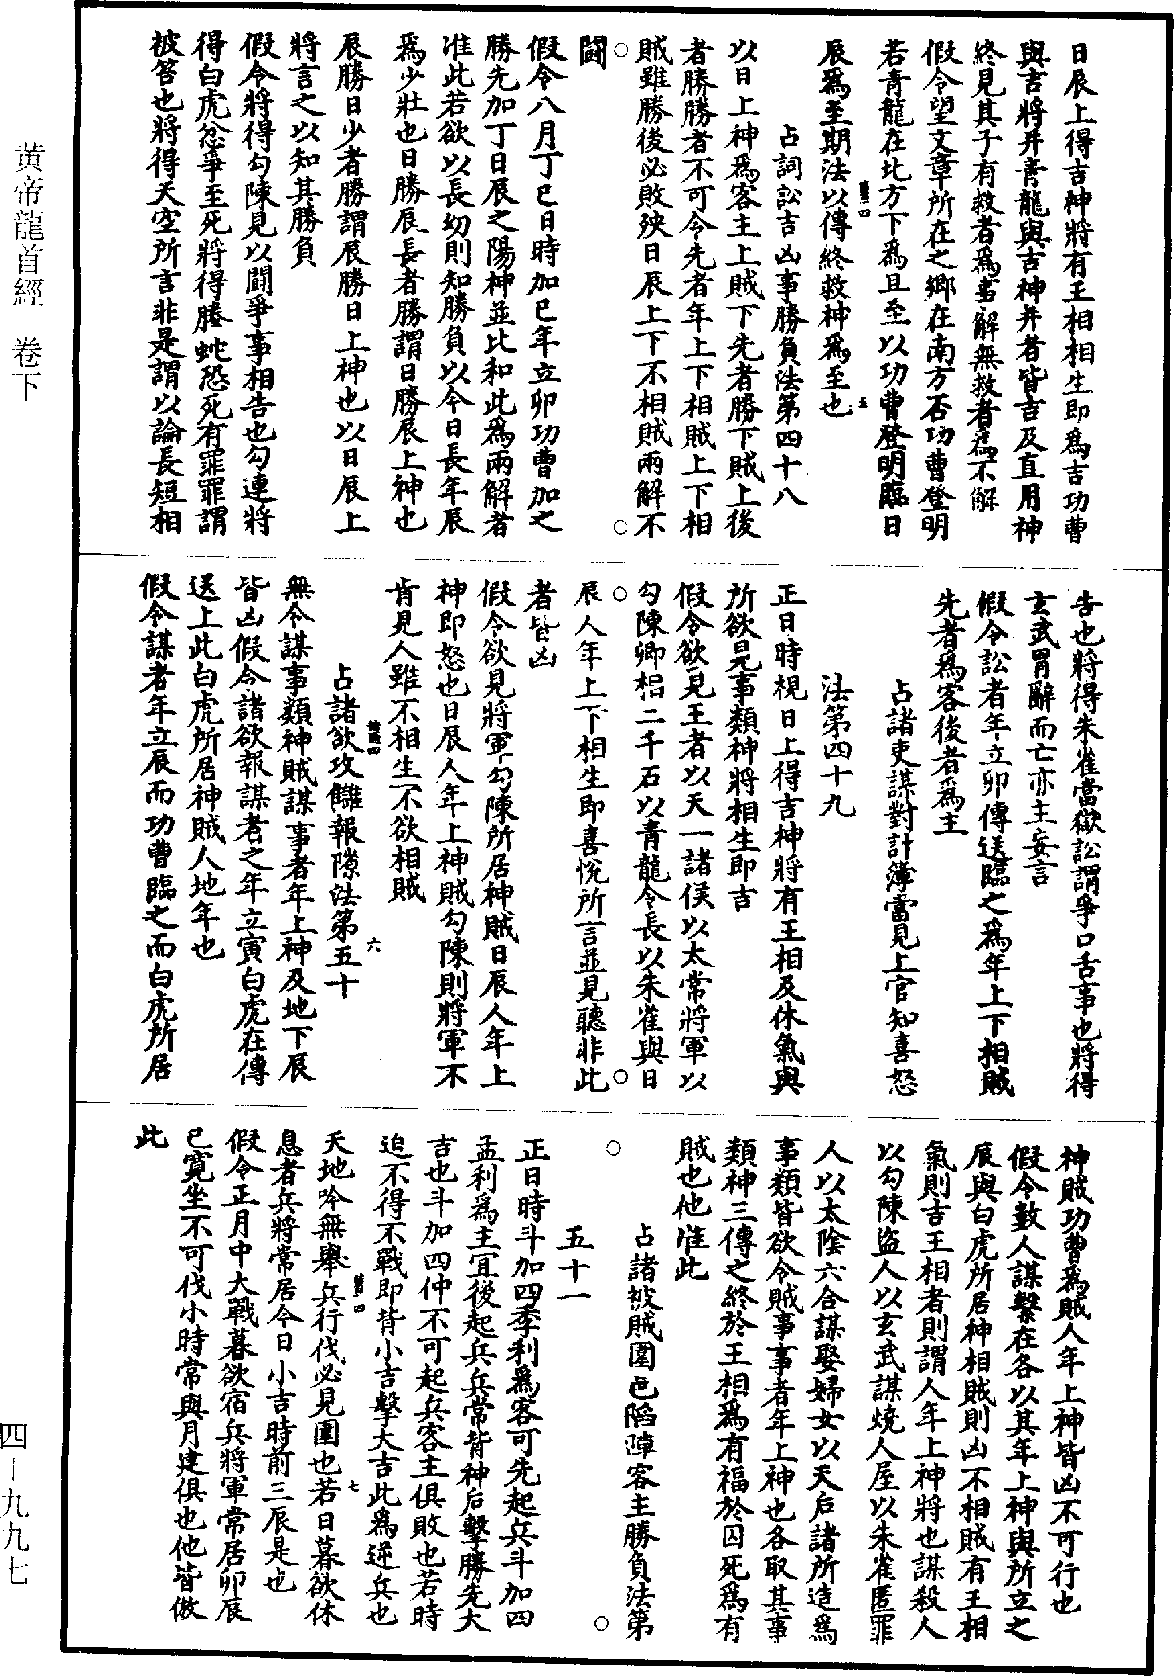 日辰上得吉神將有王相相生即為吉功曹
與吉將并青龍與吉神并者皆吉及直用神
終見其子有救者為事解無救者為不解
假令望文章所在之鄉在南方否功曹登明
若青龍在北方下為且至以功曹登明臨日
辰為至期法以傳終救神為至也
占詞訟吉凶事勝負法第四十八
以日上神為客主上賊下先者勝下賊上後
者勝勝者不可令先者年上下相賊上下相
賊雖勝後必敗殃日辰上下不相賊兩解不
鬭
假令八月丁巳日時加巳年立卯功曹加之
勝先加丁日辰之陽神並比和此為兩解者
准此若欲以長幼則知勝負以今日長年辰
為少壯也日勝辰長者勝謂日勝辰上神也
辰勝日少者勝謂辰勝日上神也以日辰上
將言之以知其勝負
假令將得勾陳見以鬭爭事相告也勾連將
得白虎忿爭至死將得螣蛇恐死有罪罪謂
被笞也將得天空所言非是謂以論長短相
告也將得朱雀當獄訟謂爭口舌事也將得
玄武冒辭而亡亦主妄言
假令訟者年立卯傳送臨之為年上下相賊
先者為客後者為主
占諸吏謀對計簿當見上官知喜怒
法第四十九
正日時視日上得吉神將有王相及休氣與
所欲見事類神將相生即吉
假令欲見王者以天一諸侯以太常將軍以
勾陳卿相二千石以青龍令長以朱雀與日
辰人年上下相生即喜悅所言並見聽非此
者皆凶
假令欲見將軍勾陳所居神賊日辰人年上
神即怒也日辰人年上神賊勾陳則將軍不
肯見人雖不相生不欲相賊
占諸欲攻讎報隙法第五十
無令謀事類神賊謀事者年上神及地下辰
皆凶假令諸欲報謀者之年立寅白虎在傳
送上此白虎所居神賊人地年也
假令謀者年立辰而功曹臨之而白虎所居
神賊功曹為賊人年上神皆凶不可行也
假令數人謀繫在各以其年上神與所立之
辰與白虎所居神相賊則凶不相賊有王相
氣則吉王相者則謂人年上神將也謀殺人
以勾陳盜人以玄武謀燒人屋以朱雀匿罪
人以太陰六合謀娶婦女以天后諸所造為
事類皆欲令賊事事者年上神也各取其事
類神三傳之終於王相為有福於囚死為有
賊也他准此
占諸被賊圍邑陷陣客主勝負法第
五十一
正日時斗加四季利為客可先起兵斗加四
孟利為主宜後起兵兵常背神后擊勝先大
吉也斗加四仲不可起兵客主俱敗也若時
迫不得不戰即背小吉擊大吉此為逆兵也
天地吟無舉兵行伐必見圍也若日暮欲休
息者兵將常居今日小吉時前三辰是也
假令正月中大戰暮欲宿兵將軍常居卯辰
已寬坐不可伐小時常與月建俱也他皆倣
此
黃帝龍首經　卷下
四－九九七